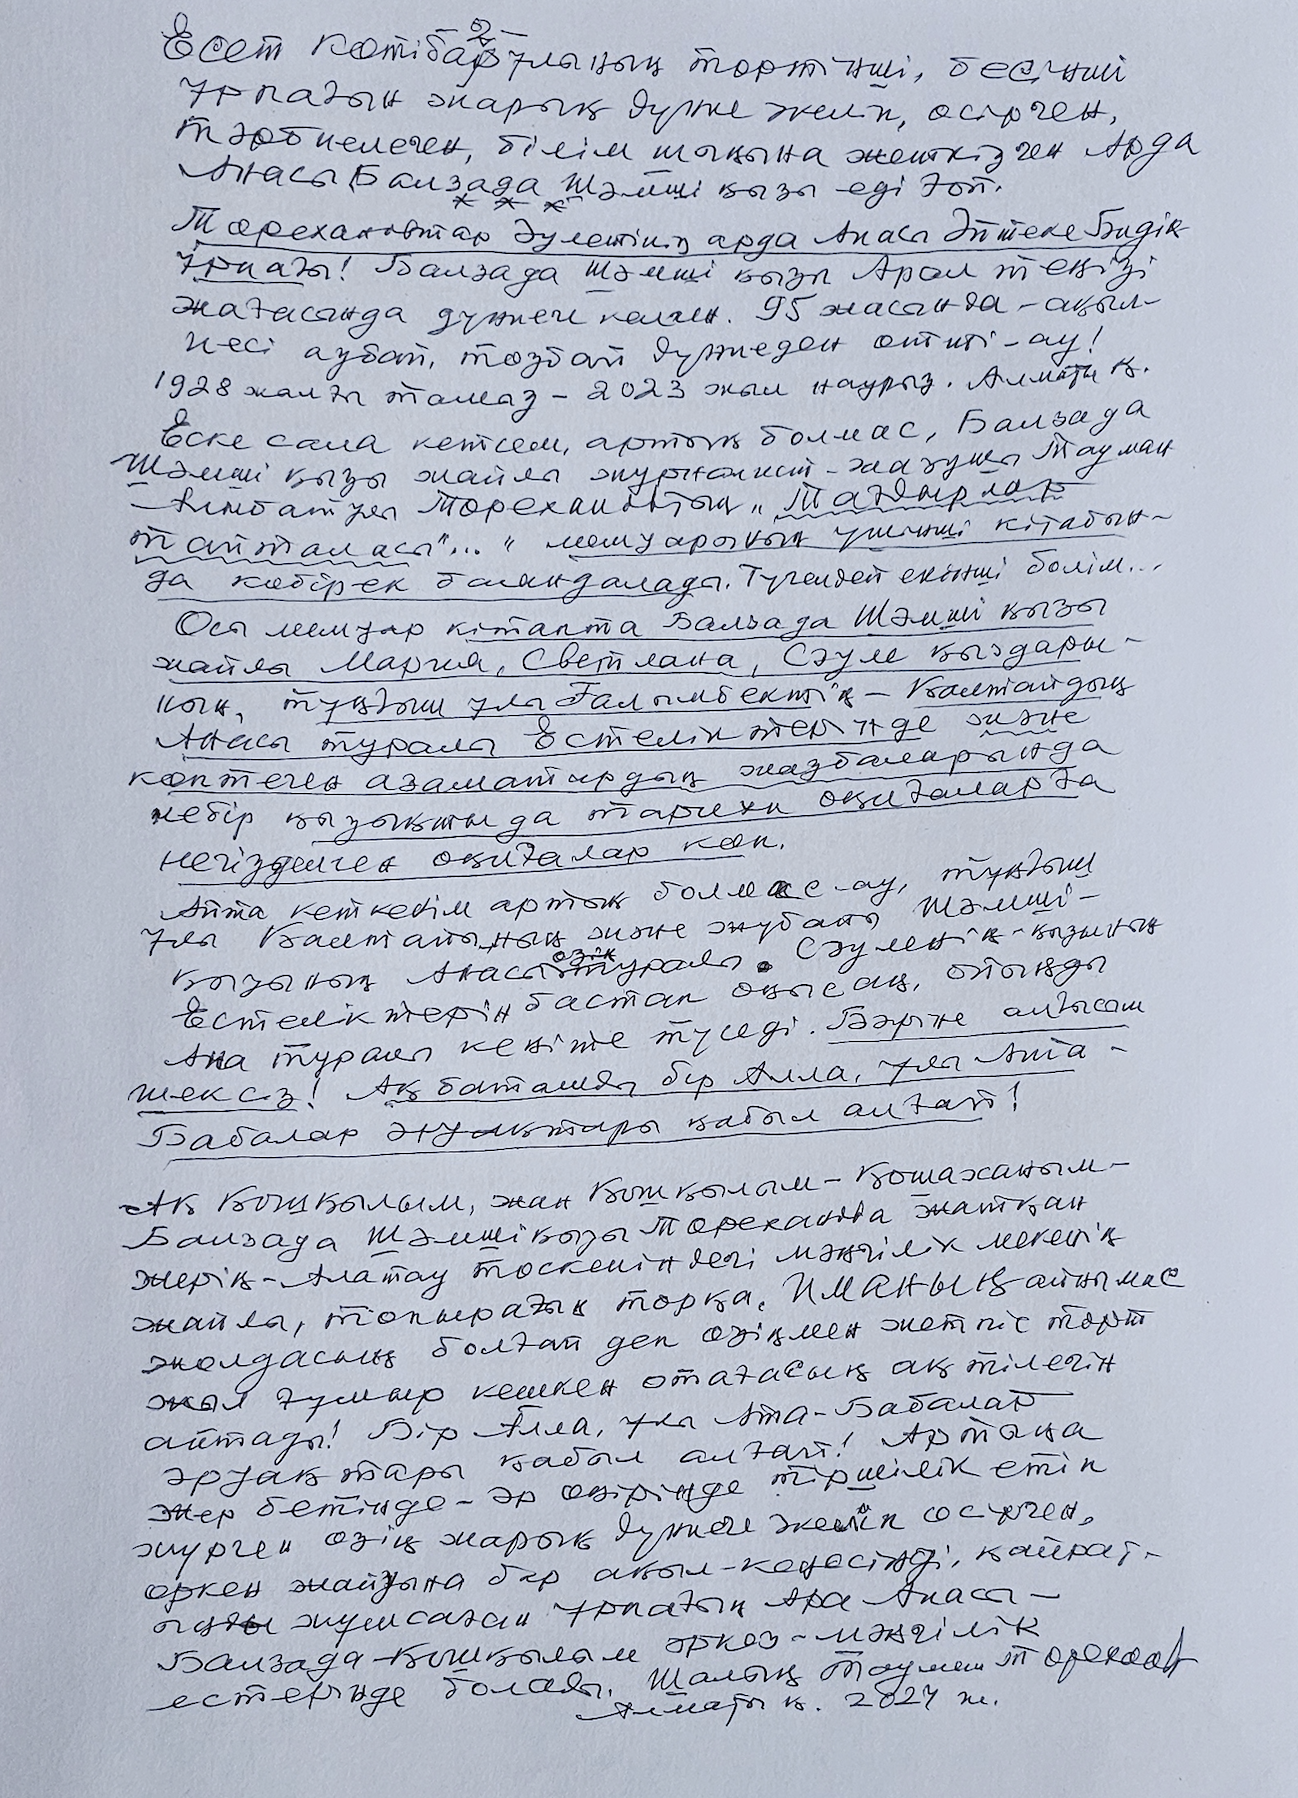 Есет Көтібарұлының төртінші, бесінші
ұрпағын жарық дүние әкеліп, өсірген,
тәрбиелеген, білім шыңына жеткізген Арда
Анасы Балзада Шәмші қызы еді ғой.
Төрехановтар әулетінің арда Анасы Әйтеке Би
Ұрпағы! Балзада Шәмші қызы Арал теңізі
жағасында дүниеге келген. 95 жасында – ақыл-
есі аубай, тозбай дүниеден өтті-ау!
1928 жылғы тамыз – 2023 жыл наурыз. Алматы қ.
Еске сала кетсем, артық болмас, Балзада
Шәмші қызы жайлы журналист-жазушы Тауман
Төрехановтың „Тағдырлар
тайталасы"... „ мемуарының үшінші кітабын-
да көбірек баяндалады. Түгелдей екінші бөлім...
Осы мемуар кітапта Балзада Шәмші қызы
жайлы Мария, Светлана, Сәуле қыздары-
ның, тұңғыш ұлы Ғалымбектің – Қалтайдың
Анасы туралы Естеліктерінде және
көптеген азаматтардың жазбаларында
небір қызықты да тарихи оқиғаларға
негізделген оқиғалар көп.
Айта кеткенім артық болмас-ау, тұңғыш
ұлы Қалтайының және жұбайы Шәмші-
қызының Анасы туралы. Сәуленің-қызының
Естеліктерін бастап оқысаң, ойыңды
Ана туралы кеңіте түседі. Бәріне алғысым
шексіз! Ақ батамды бір Алла, ұлы Ата-
Бабалар әруақтары қабыл алғай!
Ақ Қошқылым, жан Қошқылым – Қошаханым-
Балзада Шәмшіқызы Төреханова жатқан
жерің – Алатау төскейіндегі мәңгілік мекенің
жайлы, топырағың торқа, ИМАНЫҢ айнымас
жолдасың болғай деп өзіңмен жетпіс төрт
жыл ғұмыр кешкен отағасың ақ тілегін
айтады! Бір Алла, ұлы Ата-Бабалар
әруақтары қабыл алғай! Артыңа
жер бетінде – әр өңірінде тіршілік етіп
жүрген өзің жарық дүниеге әкеліп өсірген,
өркен жайуына бар ақыл-кеңесіңді, қайрат-
ыңды жұмсаған Ұрпағың Ара Анасы –
Балзада-Қошқылым әркез – мәңгілік
естерінде болады. Шалың Тауман Төреханов
Алматы қ. 2024 ж.